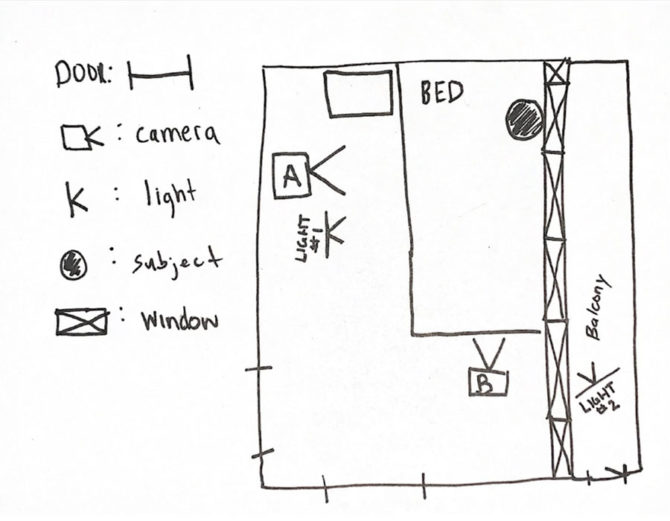 DOOR:
: camera
: light
: subject
: Window
BED
A
LIGHT
#1
B
Balcony
LIGHT
#2